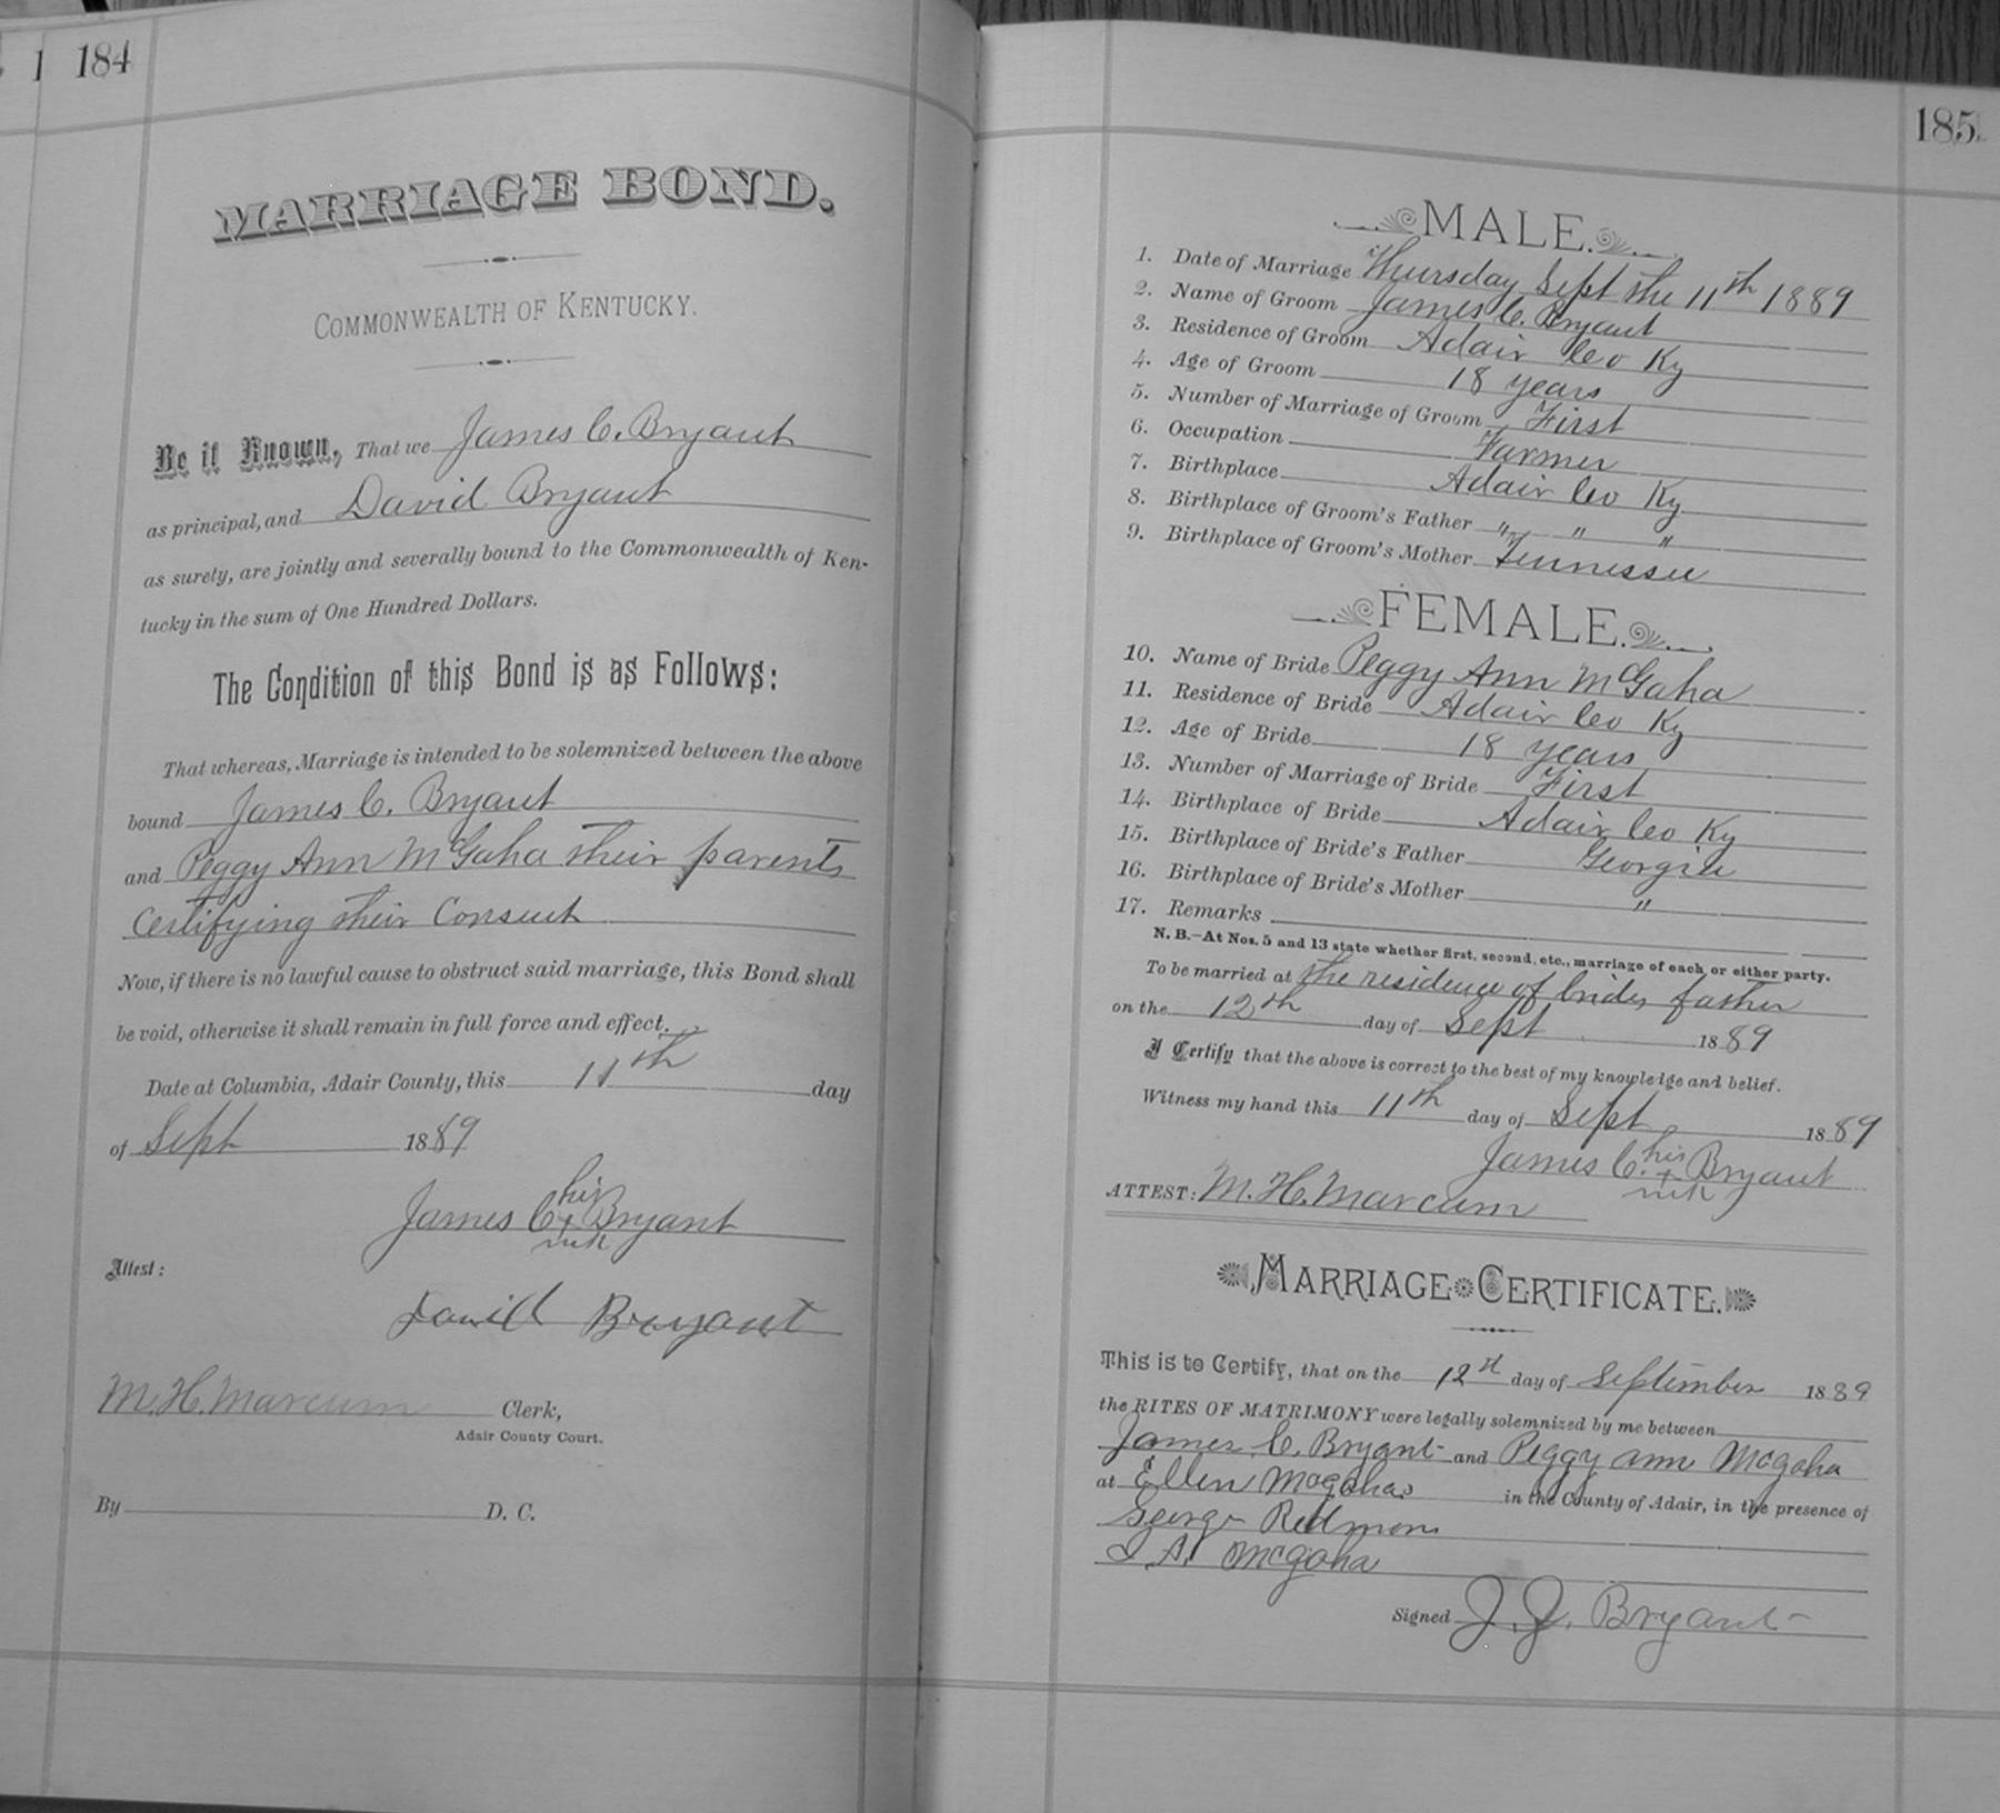 1 184
MARRIAGE BOND.
COMMONWEALTH OF KENTUCKY.
Be it Known, That we James C. Bryant
as principal, and David Bryant
as surety, are jointly and severally bound to the Commonwealth of Ken-
tucky in the sum of One Hundred Dollars.
The Condition of this Bond is as Follows:
That whereas, Marriage is intended to be solemnized between the above
bound James C. Bryant
and Peggy Ann McGaha their parents
Certifying their Consent
Now, if there is no lawful cause to obstruct said marriage, this Bond shall
be void, otherwise it shall remain in full force and effect.
Date at Columbia, Adair County, this 11th day
of Sept 1889
his
James C x Bryant
mk
Attest:
David Bryant
M. H. Marcum Clerk,
Adair County Court.
By D. C.
185
MALE.
1. Date of Marriage Thursday Sept the 11th 1889
2. Name of Groom James C. Bryant
3. Residence of Groom Adair Co Ky
4. Age of Groom 18 years
5. Number of Marriage of Groom First
6. Occupation Farmer
7. Birthplace Adair Co Ky
8. Birthplace of Groom's Father " " "
9. Birthplace of Groom's Mother Tennessee
FEMALE.
10. Name of Bride Peggy Ann McGaha
11. Residence of Bride Adair Co Ky
12. Age of Bride 18 years
13. Number of Marriage of Bride First
14. Birthplace of Bride Adair Co Ky
15. Birthplace of Bride's Father Georgia
16. Birthplace of Bride's Mother "
17. Remarks
N. B.—At Nos. 5 and 13 state whether first, second, etc., marriage of each or either party.
To be married at the residence of brides father
on the 12th day of Sept 1889
I Certify that the above is correct to the best of my knowledge and belief.
Witness my hand this 11th day of Sept 1889
his
James C. + Bryant
mk
ATTEST: M. H. Marcum
MARRIAGE CERTIFICATE.
This is to Certify, that on the 12th day of September 1889
the RITES OF MATRIMONY were legally solemnized by me between
James C. Bryant and Peggy ann Mcgaha
at Ellen Mcgahas in the County of Adair, in the presence of
George Redmon
I A. Mcgaha
Signed J. J. Bryant